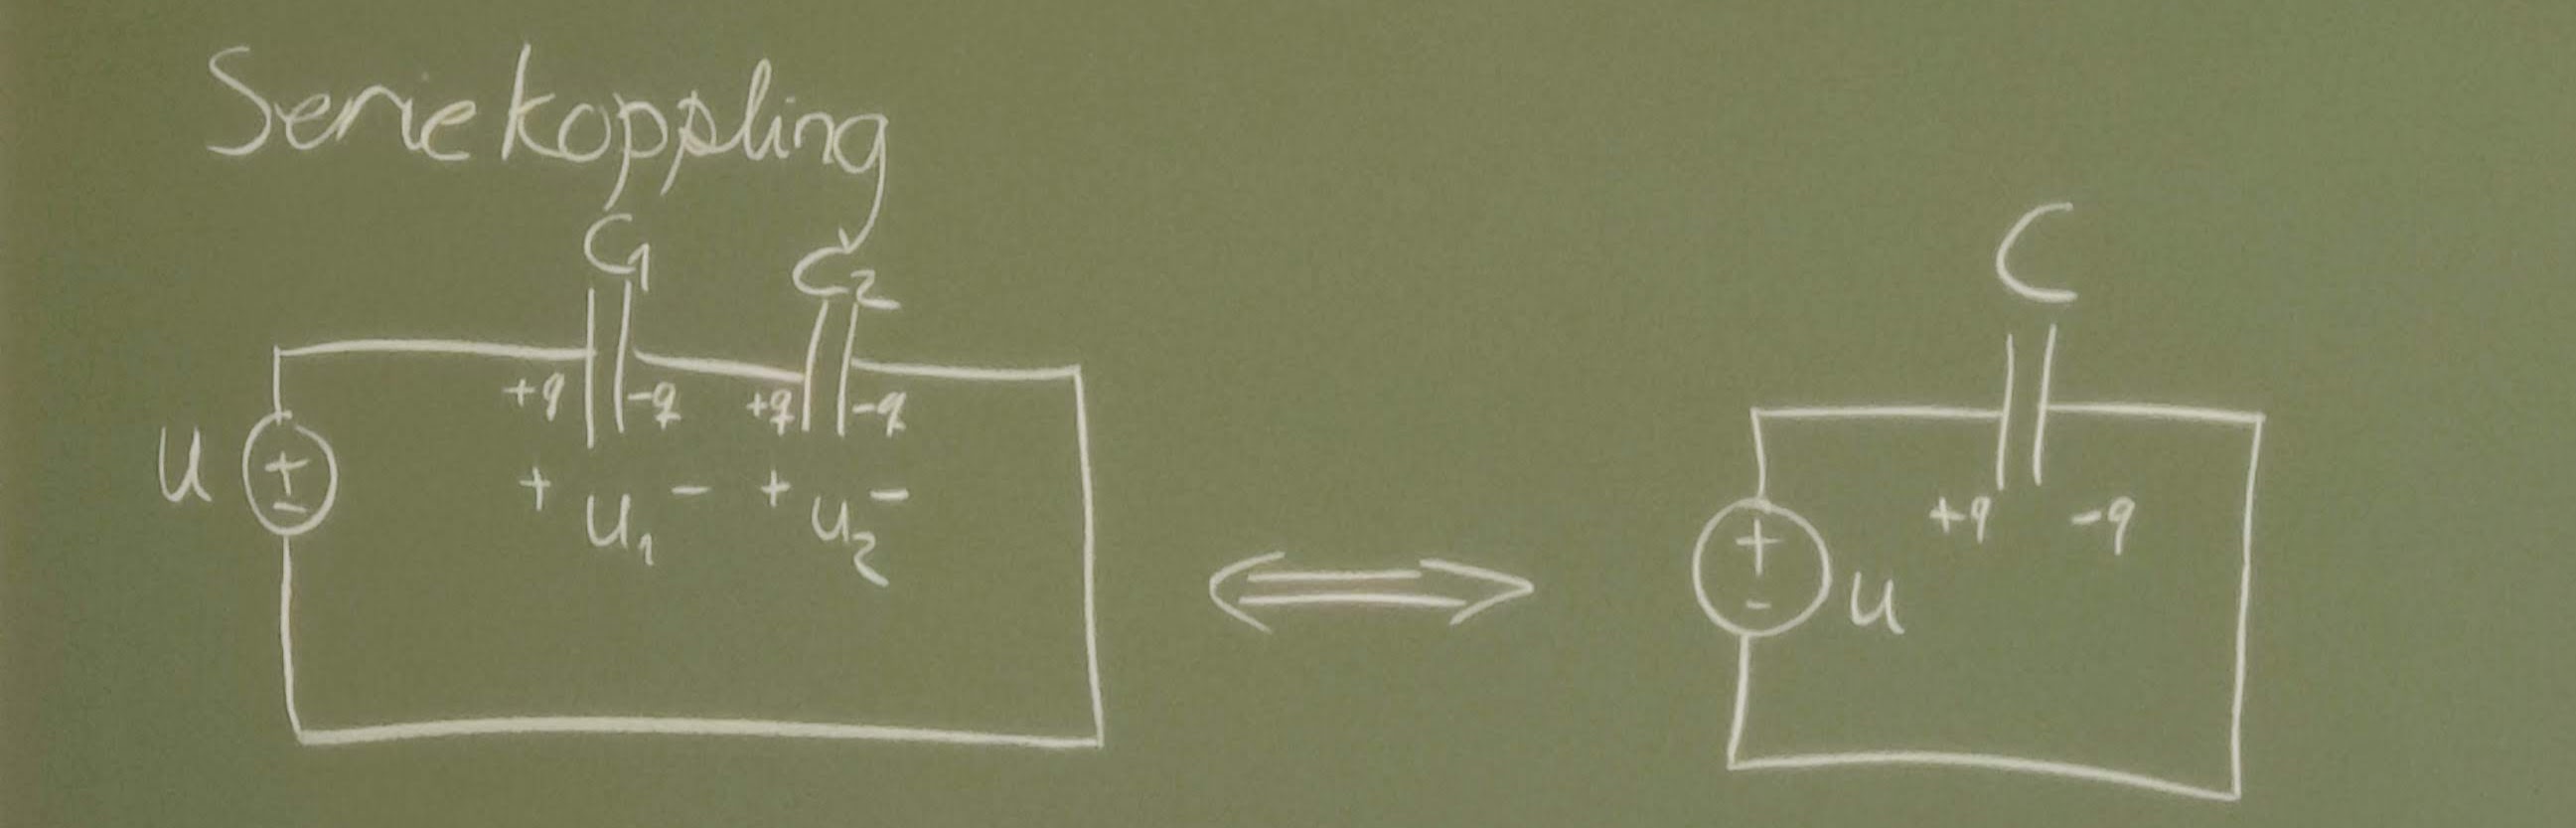 Seriekoppling
C1 C2 C
+q -q +q -q
U + - + u1 - + u2 - +q -q
+ - u